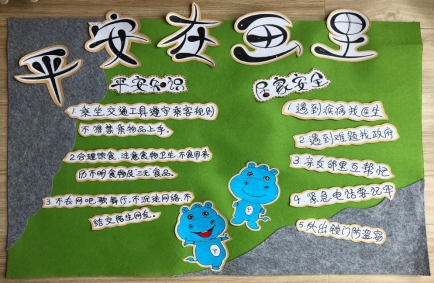 平安在画里
平安知识
1.乘坐交通工具遵守乘客规则
不携禁乘物品上车。
2.合理饮食,注意食物卫生,不食用来
历不明食物及三无食品。
3.不去网吧歌舞厅,不沉迷网络,不
结交陌生网友。
居家安全
1.遇到疾病找医生
2.遇到难题找政府
3.亲友邻里互帮忙
4.紧急电话要记牢
5.外出锁门防盗窃